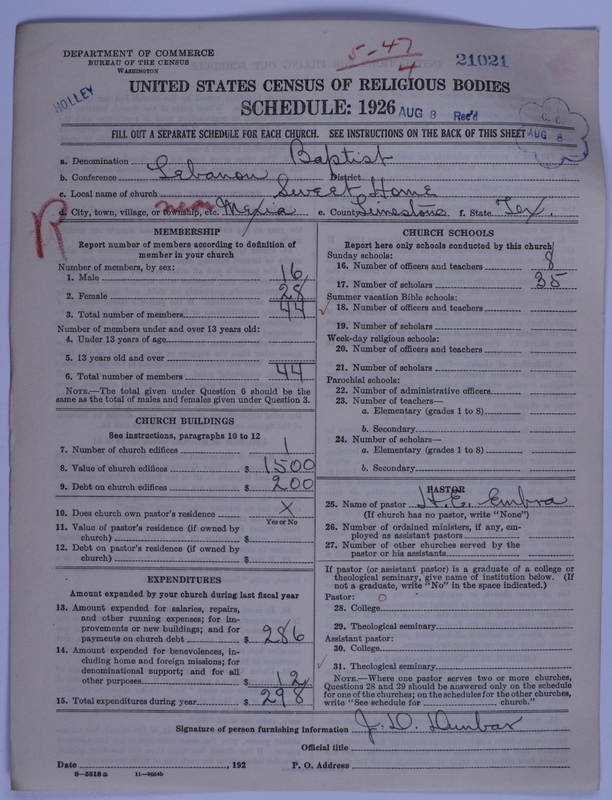 DEPARTMENT OF COMMERCE
BUREAU OF THE CENSUS
WASHINGTON
5-47
4
21021
UNITED STATES CENSUS OF RELIGIOUS BODIES
HOLLEY
SCHEDULE: 1926 AUG 8 Rec'd
C. C.
AUG 8
FILL OUT A SEPARATE SCHEDULE FOR EACH CHURCH. SEE INSTRUCTIONS ON THE BACK OF THIS SHEET
a. Denomination Baptist
b. Conference Lebanon District
c. Local name of church Sweet Home
R
d. City, town, village, or township, etc. near Mexia e. County Limestone f. State Tex.
MEMBERSHIP
Report number of members according to definition of
member in your church
Number of members, by sex:
1. Male 16
2. Female 28
3. Total number of members 44
Number of members under and over 13 years old:
4. Under 13 years of age
5. 13 years old and over
6. Total number of members 44
NOTE.—The total given under Question 6 should be the
same as the total of males and females given under Question 3.
CHURCH BUILDINGS
See instructions, paragraphs 10 to 12
7. Number of church edifices 1
8. Value of church edifices $ 1500
9. Debt on church edifices $ 200
10. Does church own pastor's residence X
Yes or No
11. Value of pastor's residence (if owned by
church) $
12. Debt on pastor's residence (if owned by
church) $
EXPENDITURES
Amount expended by your church during last fiscal year
13. Amount expended for salaries, repairs,
and other running expenses; for im-
provements or new buildings; and for
payments on church debt $ 286
14. Amount expended for benevolences, in-
cluding home and foreign missions; for
denominational support; and for all
other purposes $ 12
15. Total expenditures during year $ 298
CHURCH SCHOOLS
Report here only schools conducted by this church
Sunday schools:
16. Number of officers and teachers 8
17. Number of scholars 35
Summer vacation Bible schools:
18. Number of officers and teachers
19. Number of scholars
Week-day religious schools:
20. Number of officers and teachers
21. Number of scholars
Parochial schools:
22. Number of administrative officers
23. Number of teachers—
a. Elementary (grades 1 to 8)
b. Secondary
24. Number of scholars—
a. Elementary (grades 1 to 8)
b. Secondary
PASTOR
25. Name of pastor H. E. Embra
(If church has no pastor, write "None")
26. Number of ordained ministers, if any, em-
ployed as assistant pastors
27. Number of other churches served by the
pastor or his assistants
If pastor (or assistant pastor) is a graduate of a college or
theological seminary, give name of institution below. (If
not a graduate, write "No" in the space indicated.)
Pastor: 0
28. College
29. Theological seminary
Assistant pastor:
30. College
31. Theological seminary
NOTE.—Where one pastor serves two or more churches,
Questions 28 and 29 should be answered only on the schedule
for one of the churches; on the schedules for the other churches,
write "See schedule for church."
Signature of person furnishing information J. D. Dunbar
Official title
Date , 192 P. O. Address
8—5518 a 11—9224b